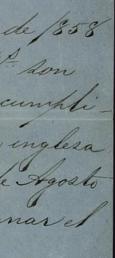 de 1858
son
cumpli-
inglesa
de Agosto
nar el